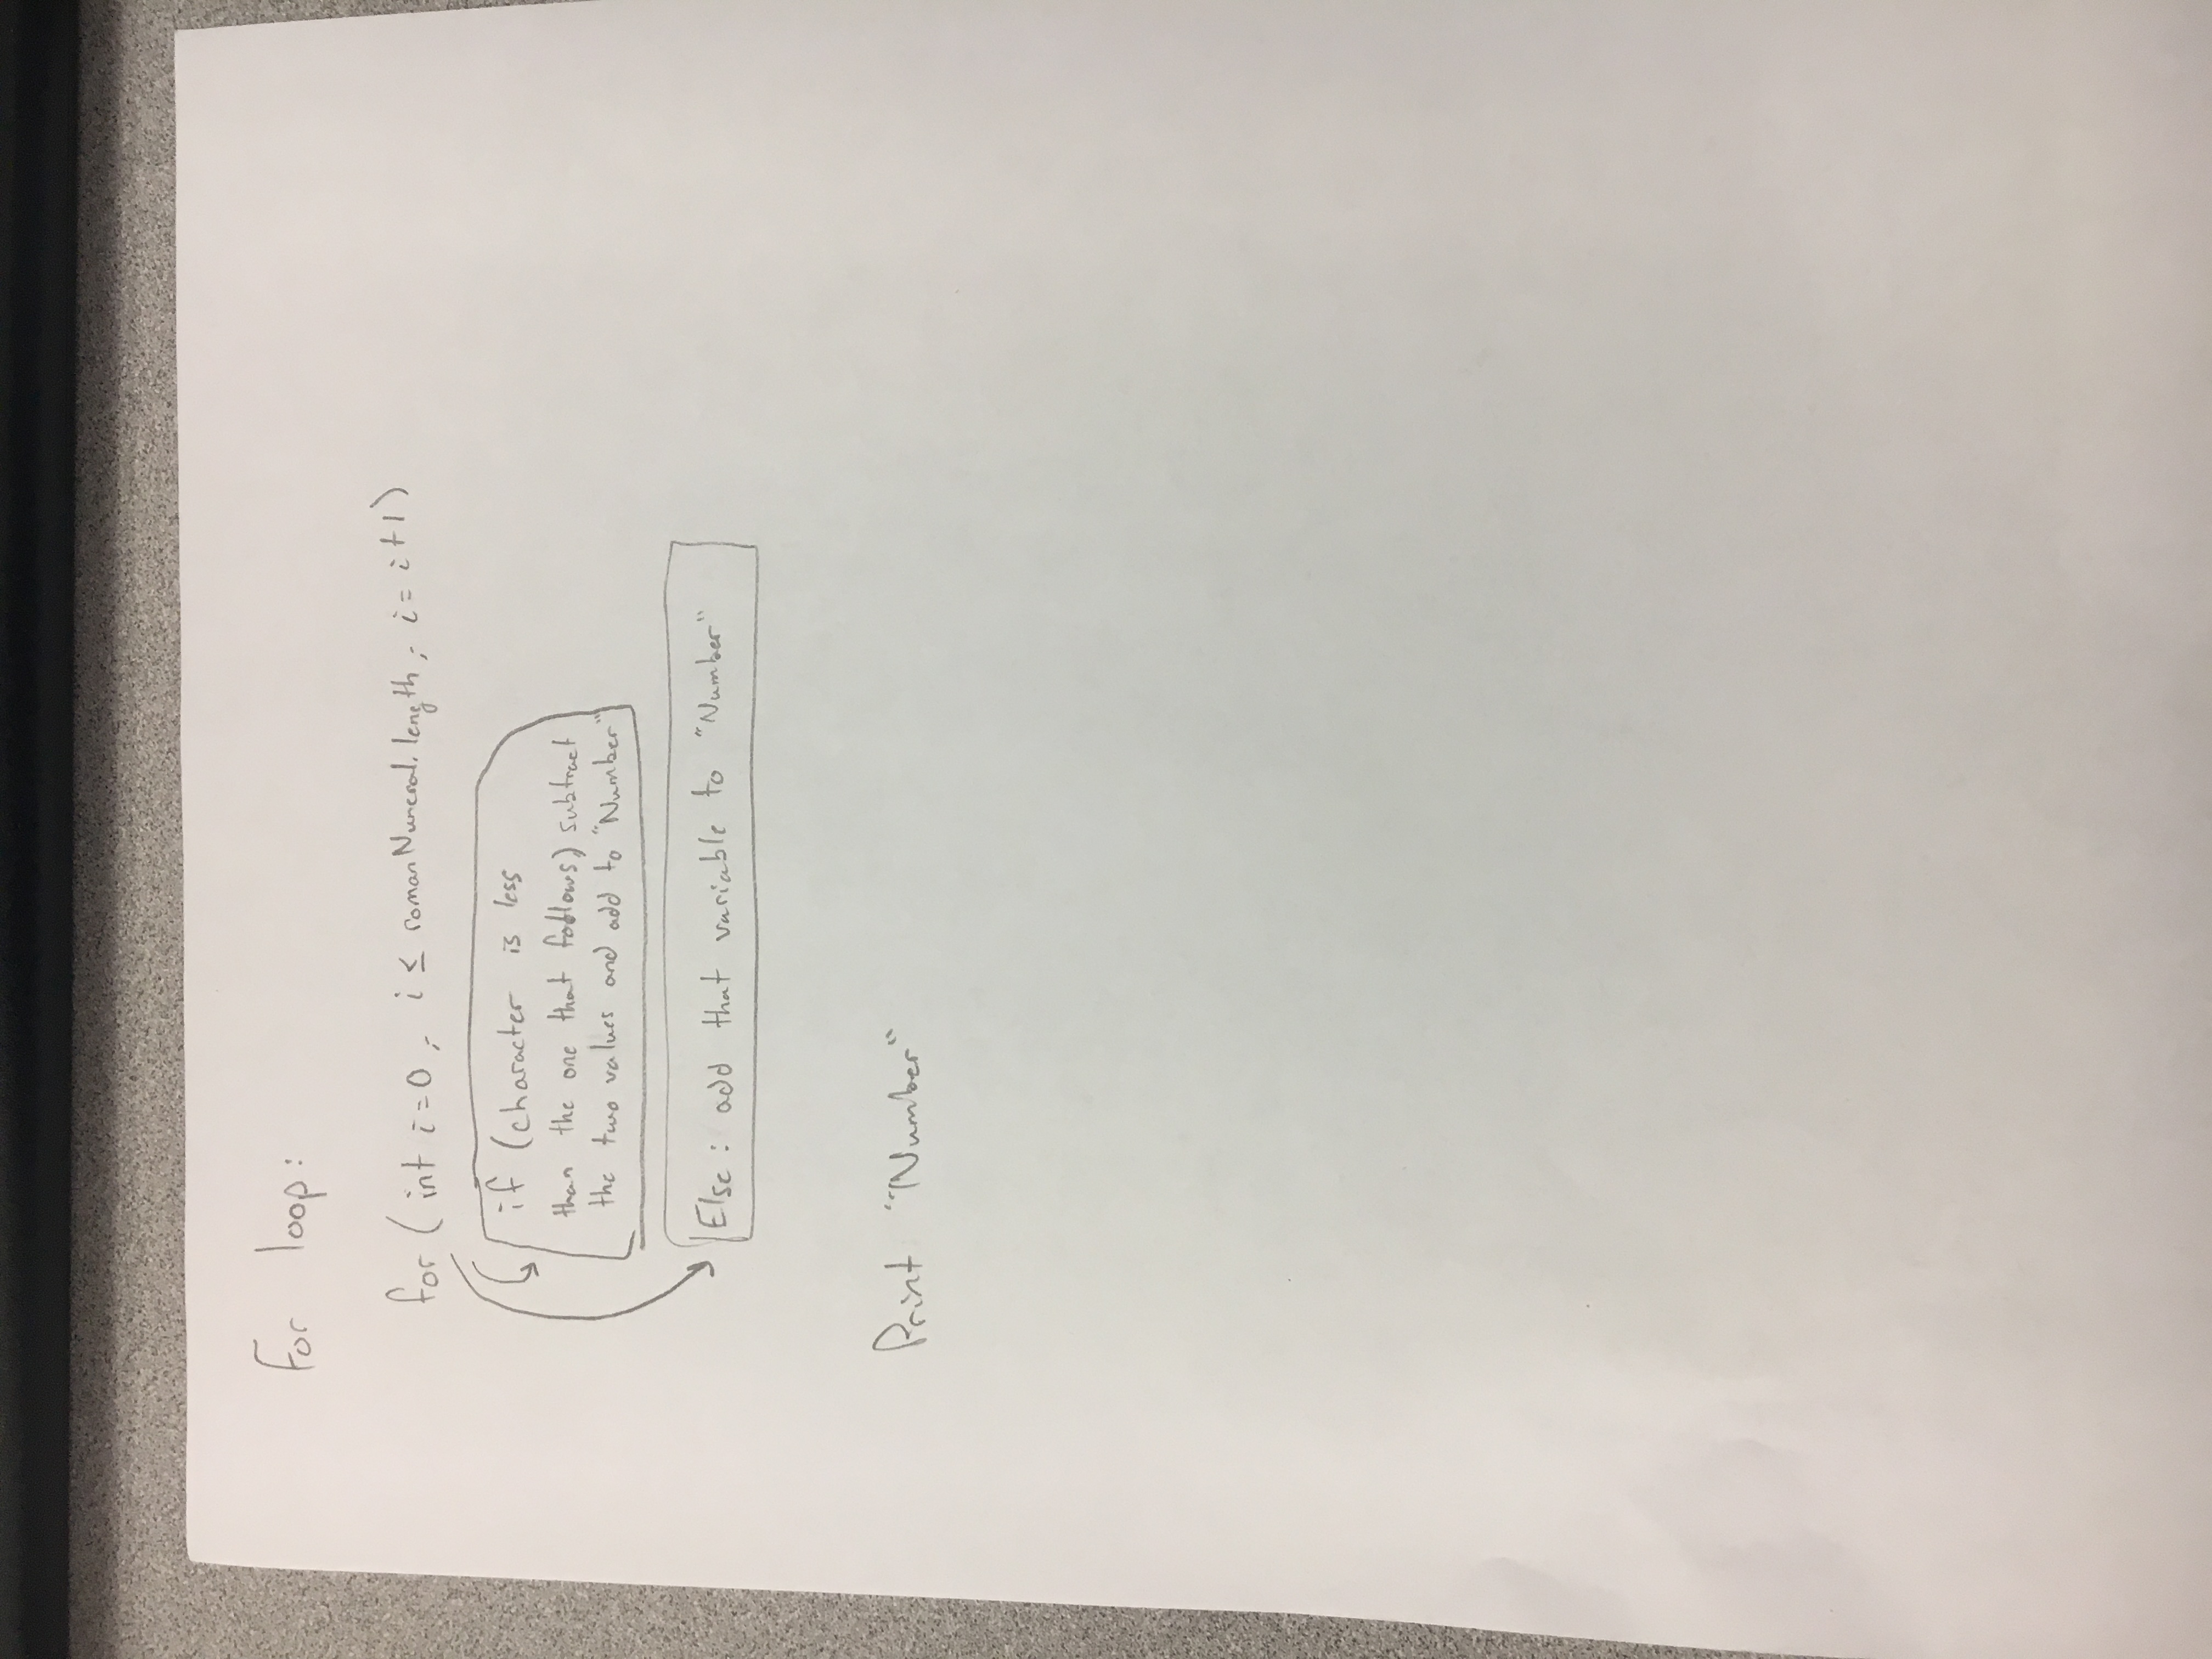 For loop:
for (int i=0; i ≤ romanNumeral.length; i=i+1)
if (character is less
than the one that follows) subtract
the two values and add to "Number"
Else: add that variable to "Number"
Print "Number"